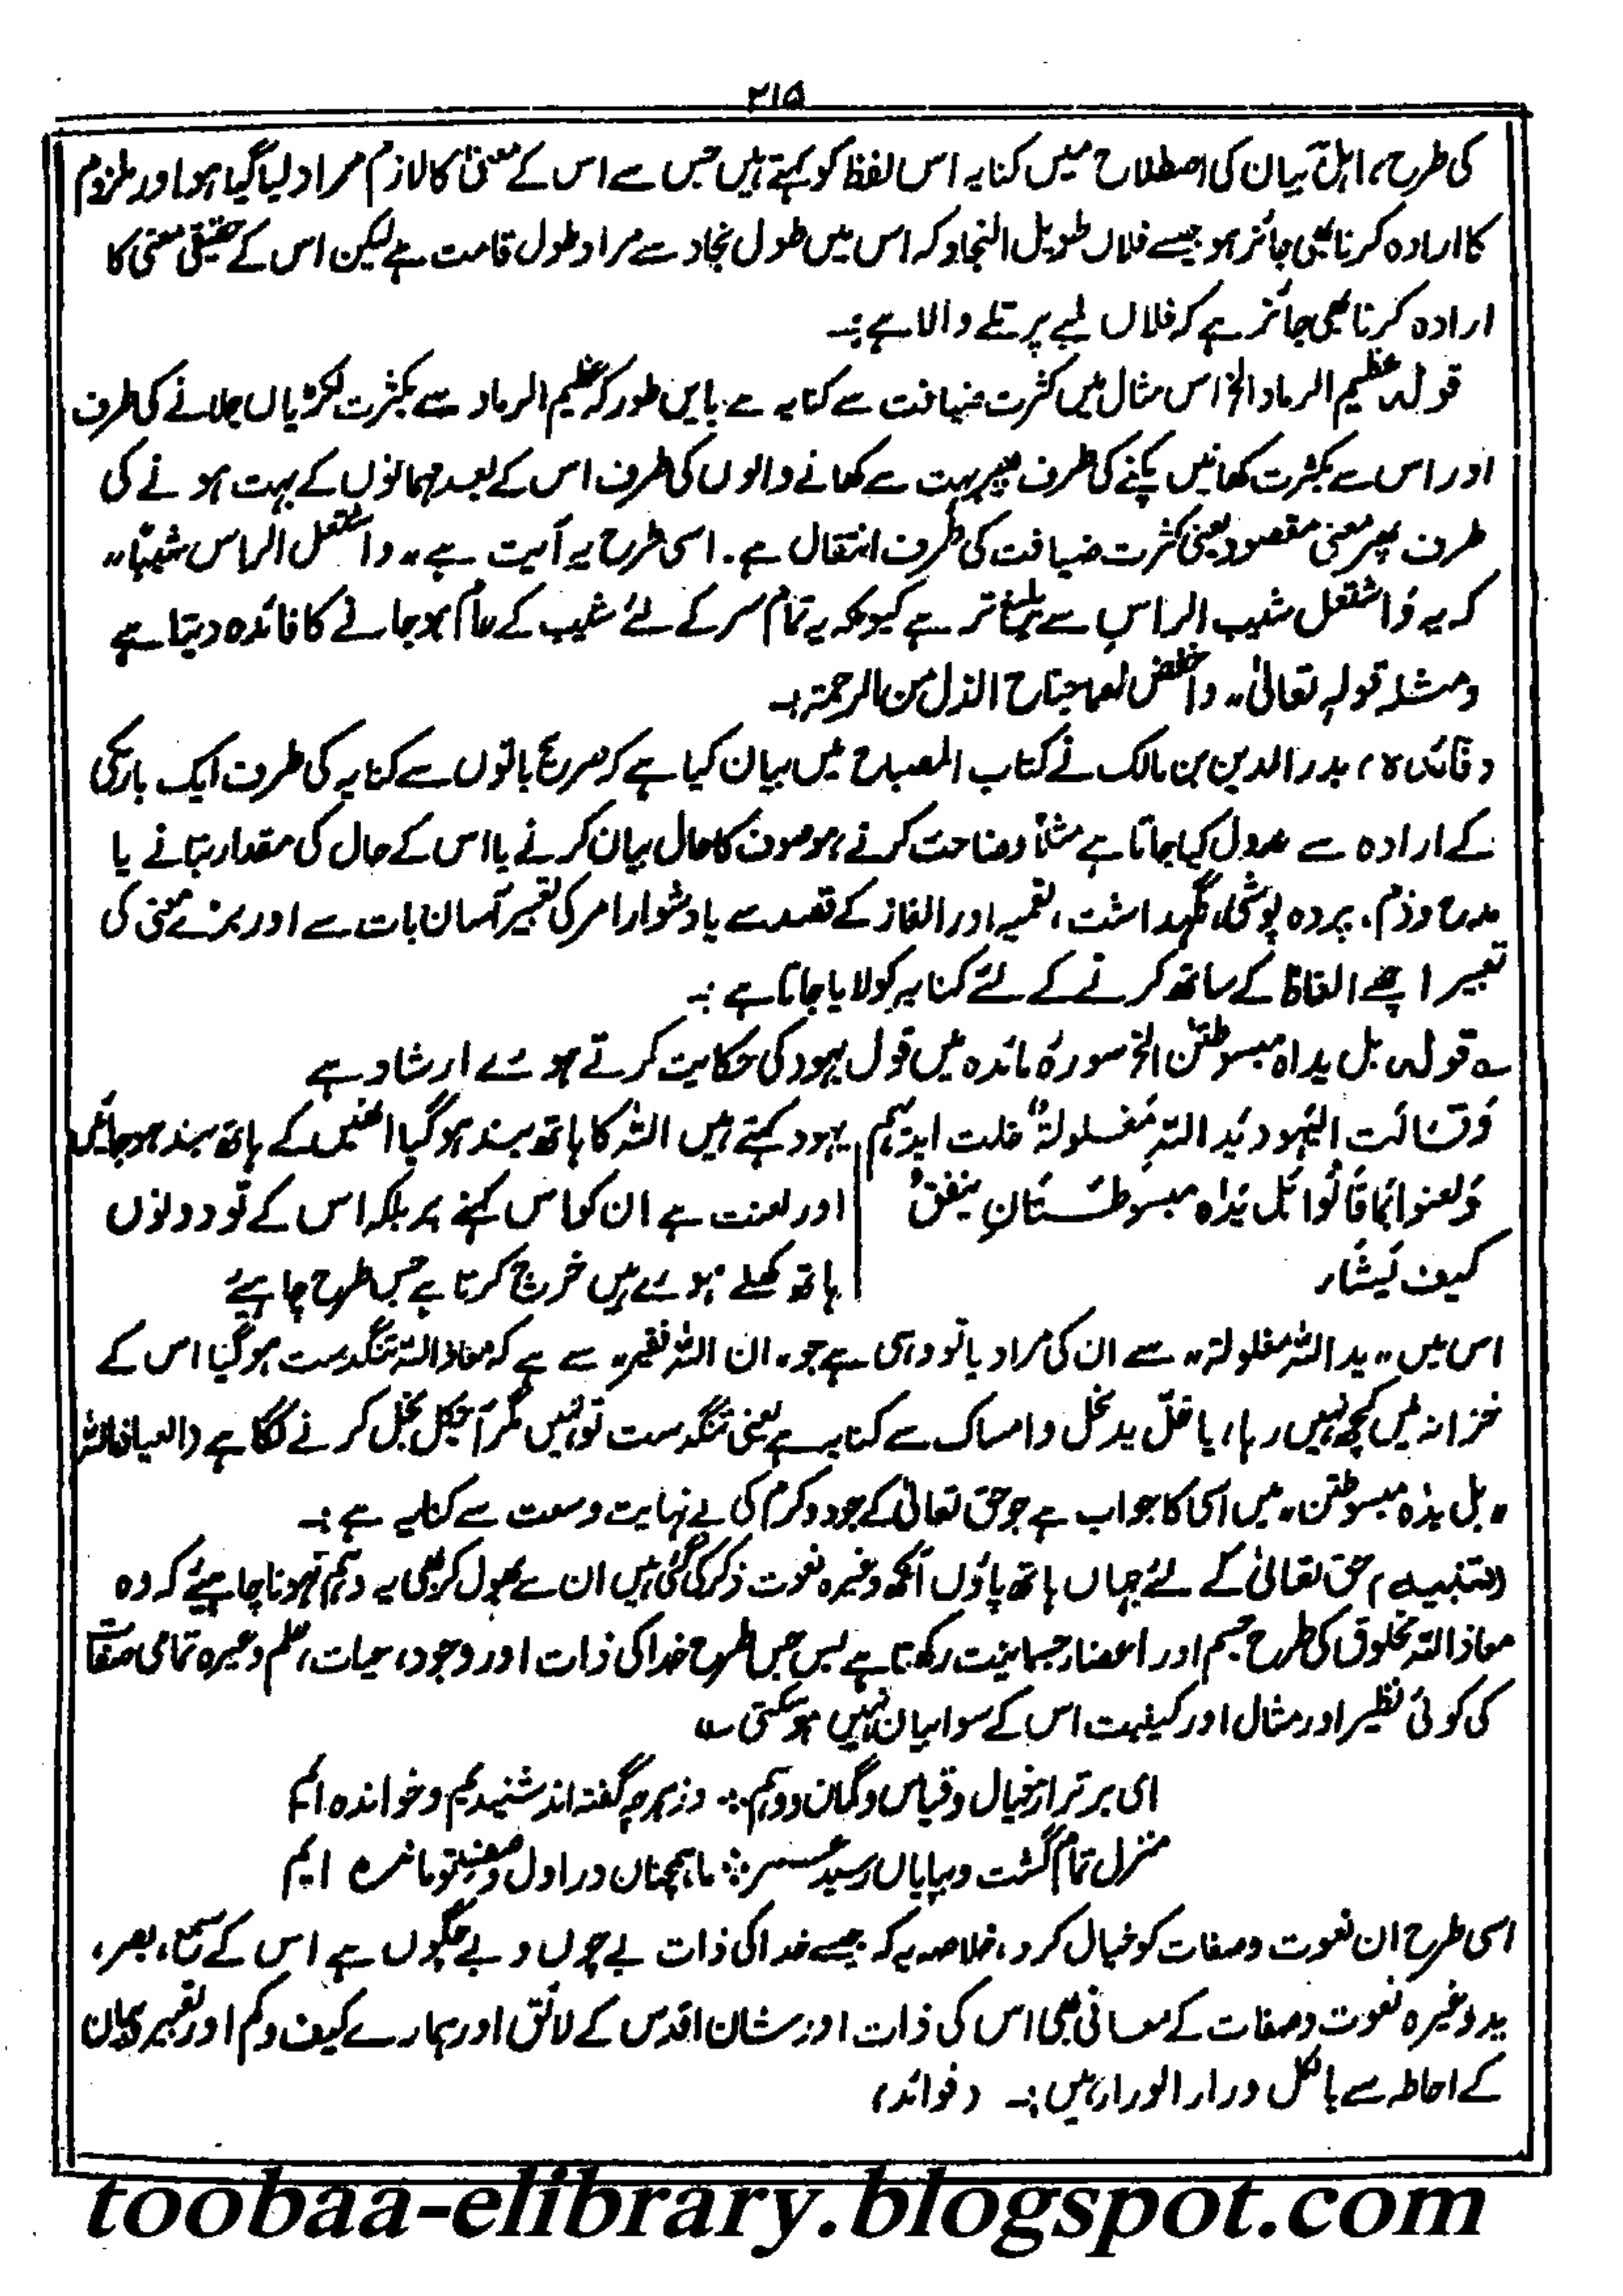 ۲۱۵
کی طرح، اہل بیان کی اصطلاح میں کنایہ اس لفظ کو کہتے ہیں جس سے اس کے معنیٰ کا لازم مراد لیا گیا ہو اور ملزوم
کا ارادہ کرنا بھی جائز ہو جیسے فلاں طویل النجاد کہ اس میں طول نجاد سے مراد طول قامت ہے لیکن اس کے حقیقی معنی کا
ارادہ کرنا بھی جائز ہے کہ فلاں لمبے پرتلے والا ہے :۔
قولہ عظیم الرماد الخ اس مثال میں کثرت ضیافت سے کنایہ ہے بایں طور کہ عظیم الرماد سے بکثرت لکڑیاں جلانے کی طرف
اور اس سے بکثرت کھانیں پکنے کی طرف پھر بہت سے کھانے والوں کی طرف اس کے بعد مہمانوں کے بہت ہونے کی
طرف پھر معنی مقصود یعنی کثرت ضیافت کی طرف انتقال ہے۔ اسی طرح یہ آیت ہے ،، واشتعل الراس شیبًا،،
کہ یہ وَاشتعل شیب الراسِ سے بلیغ تر ہے کیونکہ یہ تمام سر کے لئے شیب کے عام ہو جانے کا فائدہ دیتا ہے
ومثلہ قولہ تعالیٰ،، واخفض لھما جناح الذل من الرحمۃ :۔
(فائدہ)، بدر الدین بن مالک نے کتاب المصباح میں بیان کیا ہے کہ صریح باتوں سے کنایہ کی طرف ایک باریکی
کے ارادہ سے عدول کیا جاتا ہے مثلاً وضاحت کرنے، موصوف کا حال بیان کرنے یا اس کے حال کی مقدار بتانے یا
مدح و ذم، پردہ پوشی، نگہداشت، تعمیہ اور الغاز کے قصد سے یا دشوار امر کی تعبیر آسان بات سے اور برے معنی کی
تعبیر اچھے الفاظ کے ساتھ کرنے کے لئے کنایہ کو لایا جاتا ہے :۔
قولہ بل یداہ مبسوطتٰن الخ سورۂ مائدہ میں قول یہود کی حکایت کرتے ہوئے ارشاد ہے
وَقَالَت الیَہود یَد اللہِ مَغلولۃٌ غلت ایدیہم | یہود کہتے ہیں اللہ کا ہاتھ بند ہو گیا انھیں کے ہاتھ بند ہو جائیں
وَلعنوا بمَا قَالُوا بَل یَدٰہ مبسوطتَانِ ینفقُ | اور لعنت ہے ان کو اس کہنے پر بلکہ اس کے تو دونوں
کیفَ یَشَاء | ہاتھ کھلے ہوئے ہیں خرچ کرتا ہے جس طرح چاہیئے
اس میں ،، ید اللہ مغلولۃ،، سے ان کی مراد یا تو وہی ہے جو ،، ان اللہ فقیر،، سے ہے کہ معاذ اللہ تنگدست ہو گیا اس کے
خزانہ میں کچھ نہیں رہا، یا غلّ ید بخل و امساک سے کنایہ ہے یعنی تنگدست تو نہیں مگر آجکل بخل کرنے لگا ہے (العیاذ باللہ
،، بل یدٰہ مبسوطتٰن،، میں اسی کا جواب ہے جو حق تعالیٰ کے جود و کرم کی بے نہایت وسعت سے کنایہ ہے :۔
(تنبیہ) حق تعالیٰ کے لئے جہاں ہاتھ پاؤں آنکھ وغیرہ نعوت ذکر کی گئی ہیں ان سے بھول کر بھی یہ وہم نہونا چاہیئے کہ وہ
معاذ اللہ مخلوق کی طرح جسم اور اعضاء جسمانیت رکھتا ہے بس جس طرح خدا کی ذات اور وجود، حیات، علم وغیرہ تمامی صفات
کی کوئی نظیر اور مثال اور کیفیت اس کے سوا بیان نہیں ہو سکتی ؎
ای برتر از خیال و قیاس و گمان و وہم ؞ وز ہرچہ گفتہ اند شنیدیم و خواندہ ایم
منزل تمام گشت و بپایاں رسید عمر ؞ ما ہمچناں در اول وصف تو ماندہ ایم
اسی طرح ان نعوت و صفات کو خیال کرو، خلاصہ یہ کہ جیسے خدا کی ذات بے چوں و بے چگوں ہے اس کے سمع، بصر،
ید وغیرہ نعوت و صفات کے معانی بھی اس کی ذات اور شان اقدس کے لائق اور ہمارے کیف و کم اور تعبیر و بیان
کے احاطہ سے بالکل وراء الوراء ہیں :۔ (فوائد)
toobaa-elibrary.blogspot.com